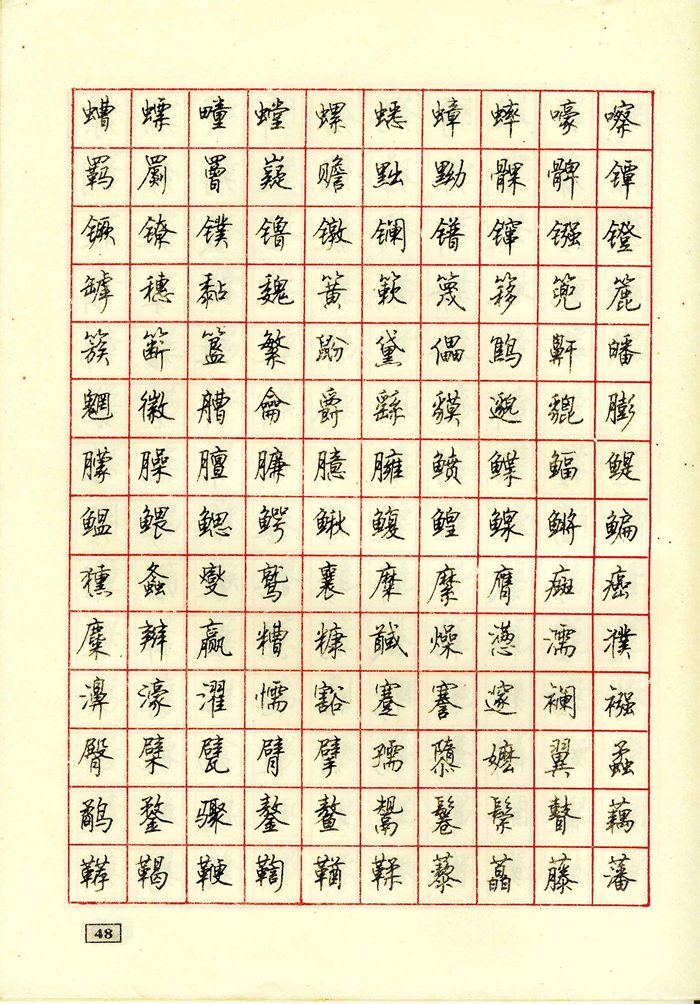 螬螵疃螳螺蟋蟑蟀嚎嚓
羁罽罾嶷赡黜黝髁髀镡
镢镣镤镥镦镧镨镩镪镫
罅穗黏魏簧簌篾簃篼簏
簇簖簋繁鼢黛儡鹪鼾皤
魍徽艚龠爵繇貘邈貔膨
朦臊膻臁臆臃鲼鲽鳊鳀
鳁鳂鳃鳄鳅鳆鳇鳈鳉鳊
獯螽燮鹫襄糜縻膺癍癌
麇辫赢糟糠馘燥懑濡濮
濞濠濯懦豁蹇謇邃襕襁
臀檗甓臂擘孺隳嬷翼蟊
鹬鍪骤鏊鳌鬶鬈鬃瞽藕
鞯鞨鞭鞫鞧鞣藜藠藤藩
48